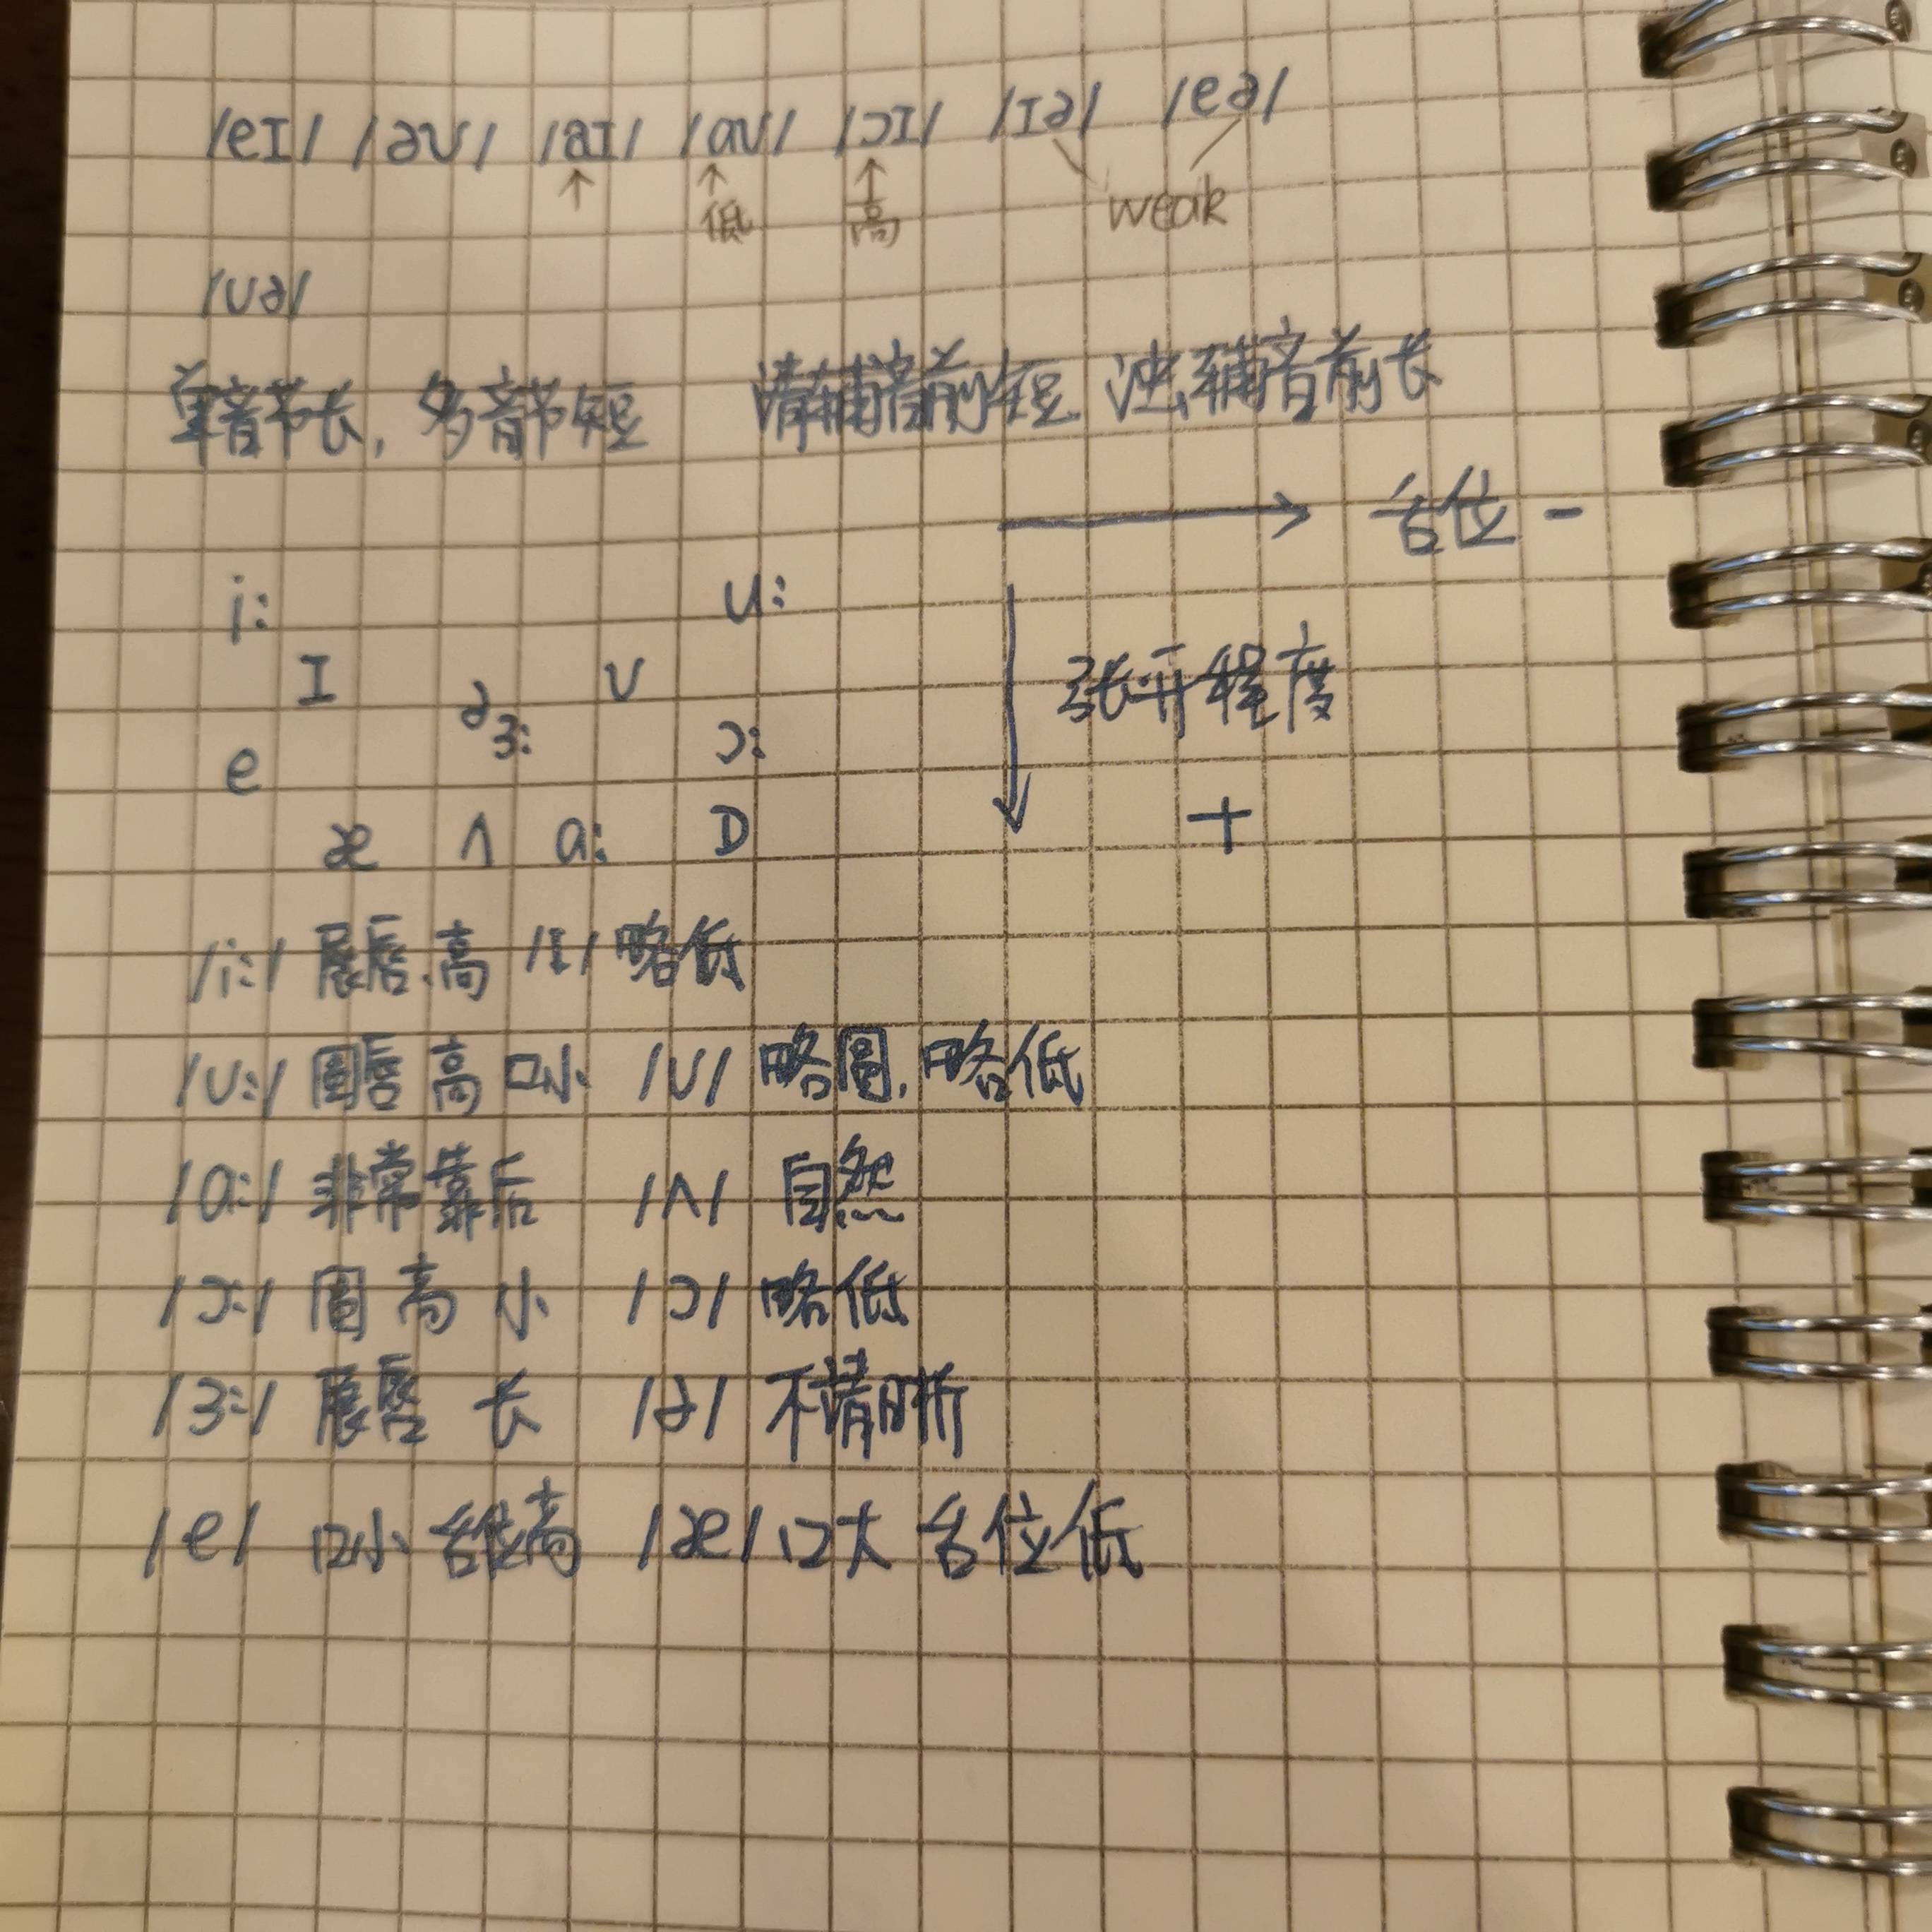 /eɪ/ /əʊ/ /aɪ/ /aʊ/ /ɔɪ/ /ɪə/ /eə/
↑ ↑低 ↑高 weak
/ʊə/
单音节长,多音节短 清辅音前短 浊辅音前长
→ 舌位 -
i: u:
ɪ ə ʊ ↓ 张开程度
e ɜ: ɔ:
æ ʌ ɑ: ɒ +
/i:/ 展唇、高 /ɪ/ 略低
/u:/ 圆唇 高 口小 /ʊ/ 略圆,略低
/ɑ:/ 非常靠后 /ʌ/ 自然
/ɔ:/ 圆 高 小 /ɔ/ 略低
/ɜ:/ 展唇 长 /ə/ 不清晰
/e/ 口小 舌位高 /æ/ 口大 舌位低